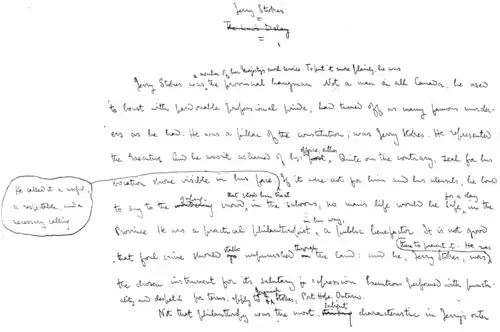 Jerry Stokes
The Law's Delay
a member of her Majesty's civil service. To put it more plainly, he was
Jerry Stokes was the provincial hangman. Not a man in all Canada, he used
to boast with pardonable professional pride, had turned off as many famous murder-
ers as he had. He was a pillar of the constitution, was Jerry Stokes. He represented
office, either
the Executive. And he wasn't ashamed of his Quite on the contrary, zeal for his
vocation shone visible in his face. If it were not for him and his utensils, he loved
He called it a useful,
a respectable, and a
necessary calling
that stood him treat
for a day
to say to the gaping crowd, in the saloons, no man's life would be safe, in the
in his way,
Province. He was a practical philanthropist, a public benefactor. It is not good
time to prevent it. He was
stalk
through
that foul crime should unpunished the land: and he, Jerry Stokes, was
the chosen instrument for its salutary repression. Executions performed with punctu-
ality and despatch: for terms, apply to Stokes, Port Hope, Ontario.
Not that philanthropy was the most characteristic in Jerry's outer